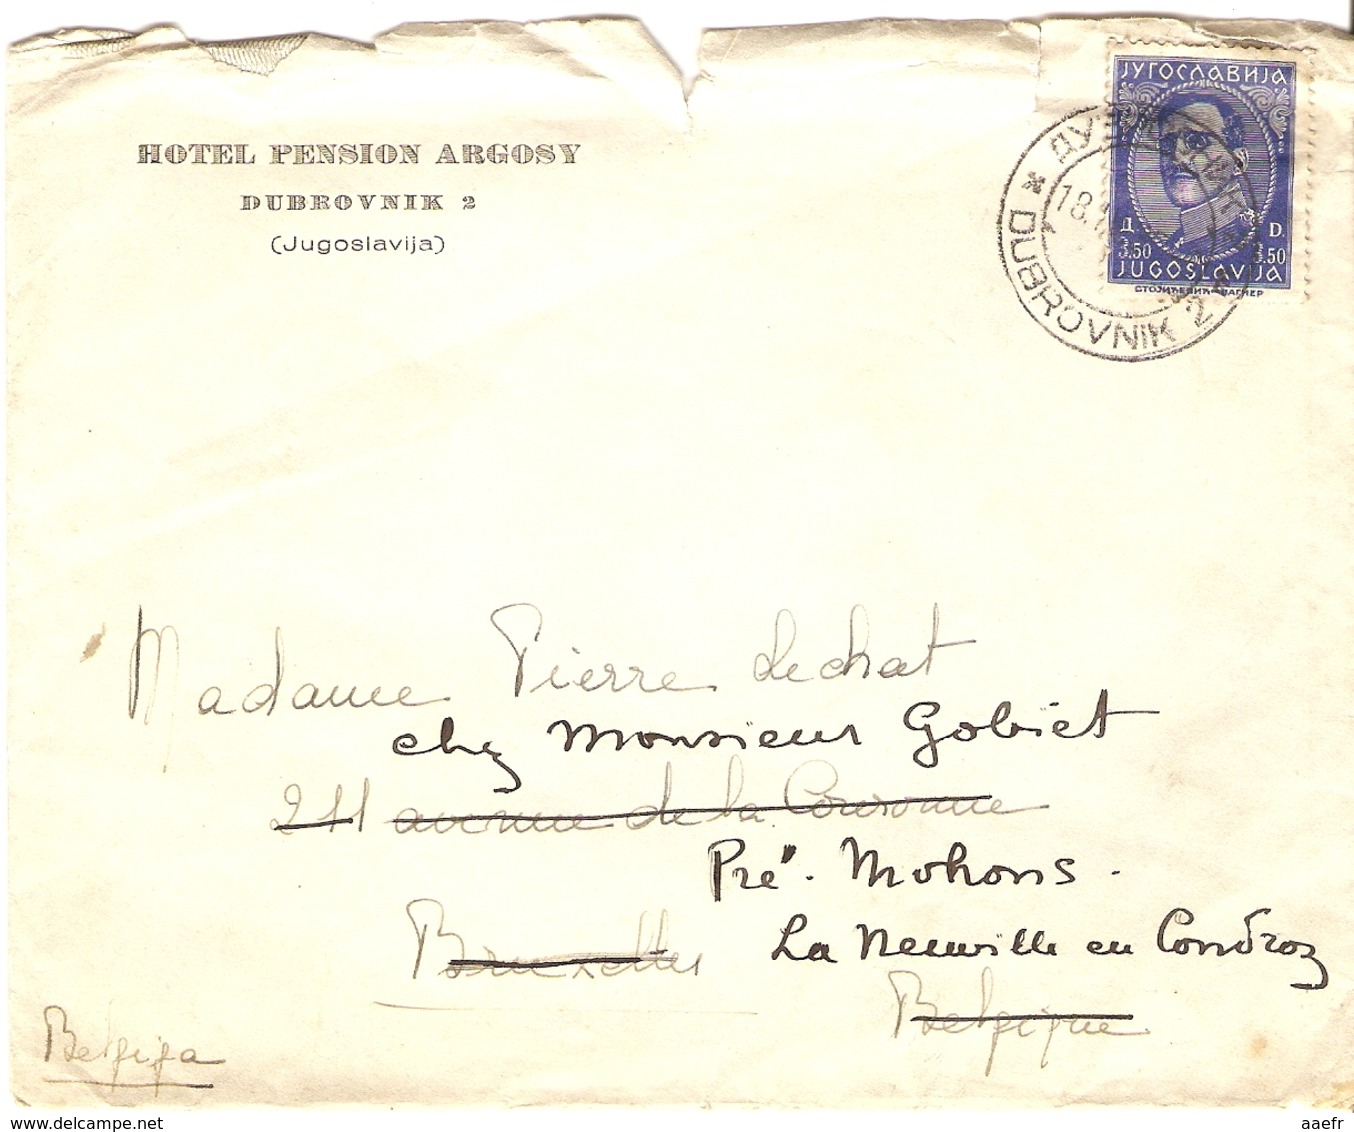 HOTEL PENSION ARGOSY
DUBROVNIK 2
(Jugoslavija)
ЈУГОСЛАВИЈА
Д. D.
3.50 3.50
JUGOSLAVIJA
DUBROVNIK 2
18.
Madame Pierre Lechat
chez Monsieur Gobiet
211 avenue de la Couronne
Pré. Mohons.
Bruxelles
La Neuville en Condroz
Belgique
Belgija
www.delcampe.net
aaefr